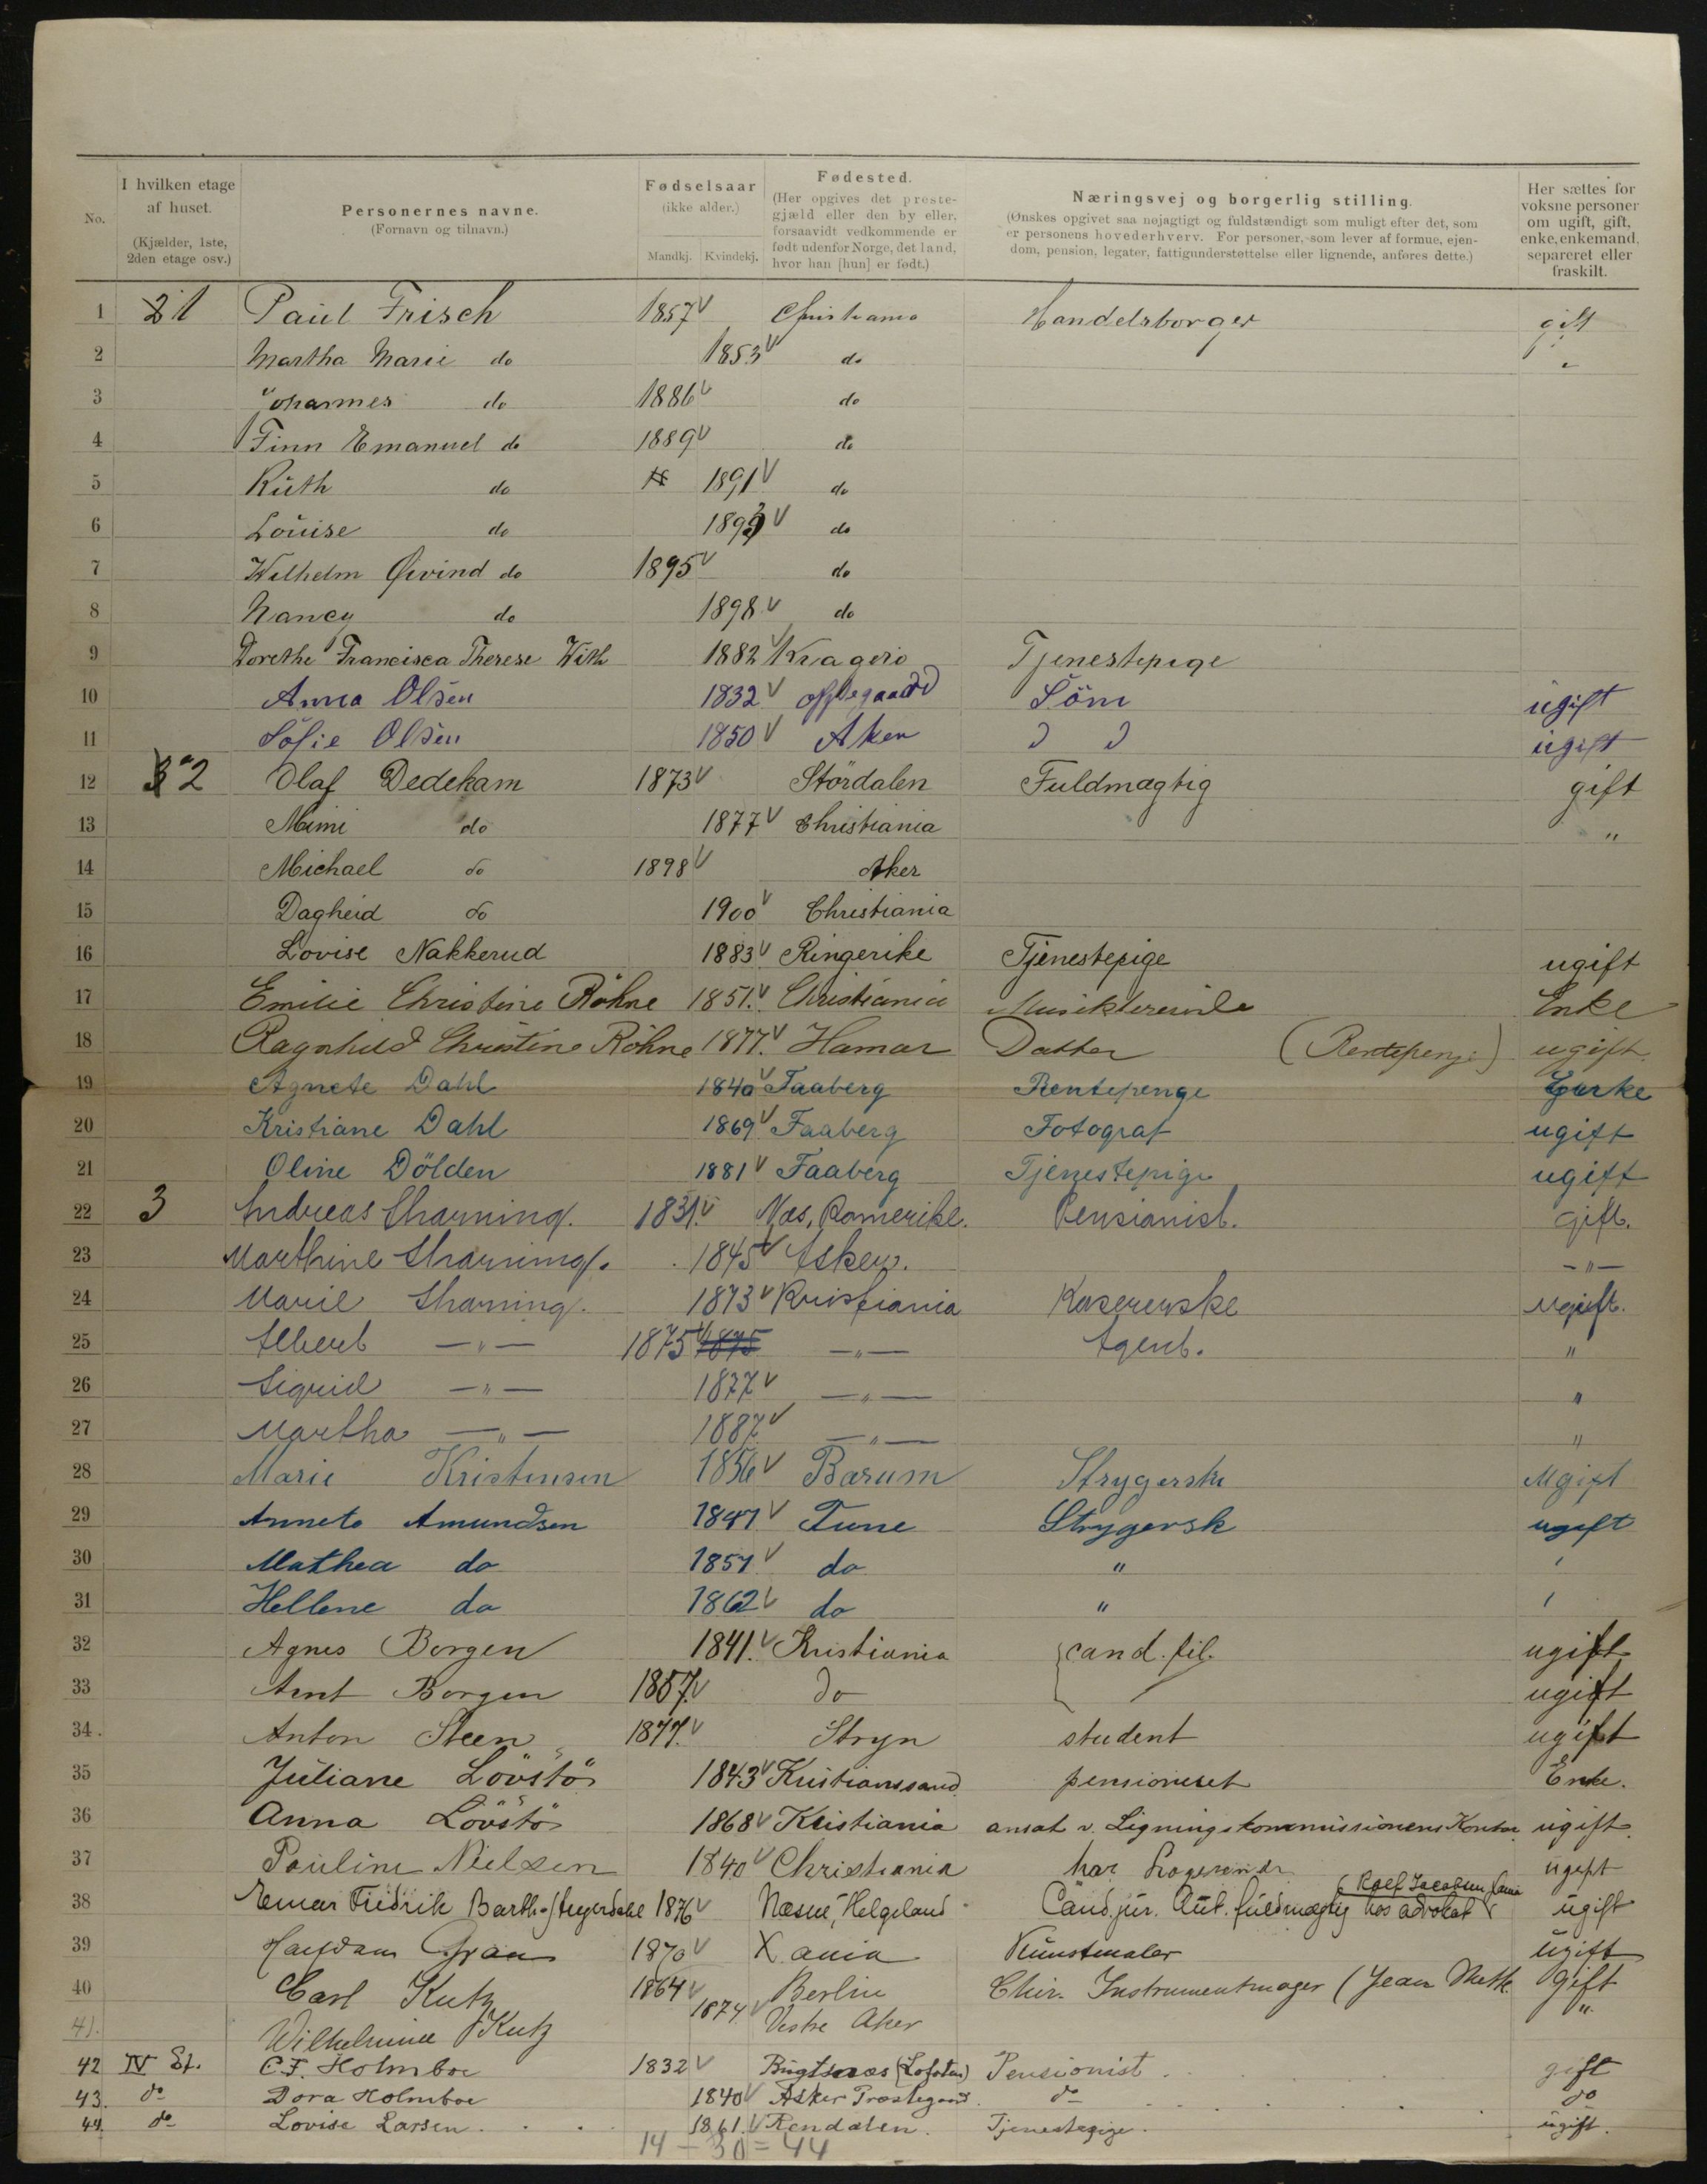 No.
I hvilken etage af huset.
(Kjælder, 1ste, 2den etage osv.)
Personernes navne.
(Fornavn og tilnavn.)
Fødselsaar
(ikke alder.)
Mandkj. Kvindekj.
Fødested.
(Her opgives det præste-
gjæld eller den by eller,
forsaavidt vedkommende er
født udenfor Norge, det land,
hvor han [hun] er født.)
Næringsvej og borgerlig stilling.
(Ønskes opgivet saa nøjagtigt og fuldstændigt som muligt efter det, som
er personens hovederhverv. For personer, som lever af formue, ejen-
dom, pension, legater, fattigunderstøttelse eller lignende, anføres dette.)
Her sættes for
voksne personer
om ugift, gift,
enke, enkemand,
separeret eller
fraskilt.
1 1 Paul Frisch 1857 Christiania Handelsborger gift
2 Martha Marie do 1853 do "
3 Johannes do 1886 do
4 Finn Emanuel do 1889 do
5 Ruth do 1891 do
6 Louise do 1893 do
7 Wilhelm Øivind do 1895 do
8 Nancy do 1898 do
9 Dorethe Francisca Therese With 1882 Kragerø Tjenestepige
10 Anna Olsen 1832 Oppegaard Söm ugift
11 Sofie Olsen 1850 Aker ugift
12 2 Olaf Dedekam 1873 Stördalen Fuldmægtig gift
13 Mimi do 1877 Christiania "
14 Michael do 1898 Aker
15 Dagheid do 1900 Christiania
16 Lovise Nakkerud 1883 Ringerike Tjenestepige ugift
17 Emilie Christine Röhne 1851. Christiania Musiklærerinde Enke
18 Ragnhild Christine Röhne 1877. Hamar Datter (Rentepenge) ugift
19 Agnete Dahl 1840 Faaberg Rentepenge Enke
20 Kristiane Dahl 1869 Faaberg Fotograf ugift
21 Oline Dölden 1881 Faaberg Tjenestepige ugift
22 3 Andreas Skarning. 1831. Næs, Romerike. Pensionist. gift.
23 Marthine Skarning. 1845 Asker. -"-
24 Marie Skarning. 1873 Kristiania Kasererske ugift.
25 Albert -"- 1875 1875 -"- Agent. "
26 Sigrid -"- 1877 -"- "
27 Martha -"- 1887. -"- "
28 Marie Kristensen 1856 Bærum Strygerske Ugift
29 Annete Amundsen 1847 Tune Strygersk ugift
30 Mathea do 1851 do "
31 Hellene do 1862 do "
32 Agnes Borgen 1841. Kristiania cand. fil. ugift
33 Arnt Borgen 1857. do ugift
34. Anton Steen 1877. Stryn student ugift
35 Juliane Lövstö 1843 Kristianssand pensioneret Enke.
36 Anna Lövstö 1868 Kristiania ansat v. Ligningskommissionens Kontor ugift.
37 Pauline Nielsen 1840 Christiania har Logerende ugift
38 Fredrik Barth 1876 Næsne, Helgeland Cand. jur. Aut. fuldmægtig hos advokat Rolf Jacobsen ugift
39 Halfdan Gran 1870 Xania Kunstmaler ugift
40 Carl Kutz 1864 Berlin Chir. Instrumentmager (Jean gift
41. Wilhelmine Kutz 1874 Vestre Aker "
42 IV Et. C.F. Holmboe 1832 (Lofoten) Pensionist gift
43. do Dora Holmboe 1840 Asker Præstegaard do do
44. do Lovise Larsen 1861. Rendalen. Tjenestepige. ugift.
14 + 30 = 44